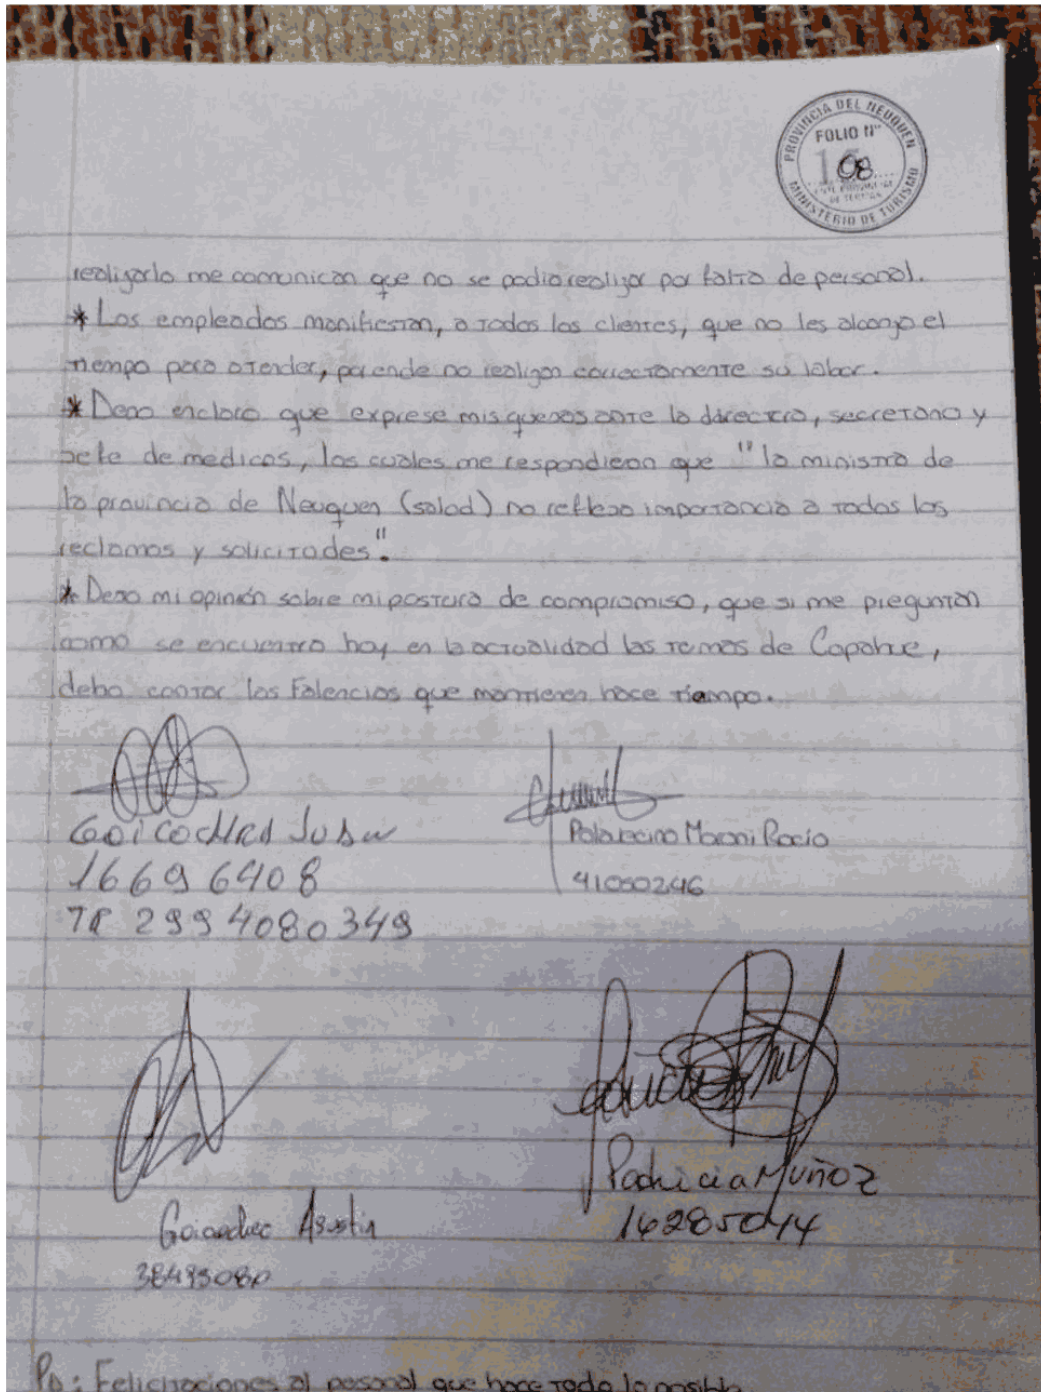 PROVINCIA DEL NEUQUEN
FOLIO N°
08
MINISTERIO DE TURISMO
realizarlo me comunican que no se podia realizar por falta de personal.
* Los empleados manifiestan, a todos los clientes, que no les alcanza el
tiempo para atender, por ende no realizan correctamente su labor.
* Dejo en claro que exprese mis quejas ante la directora, secretaria y
jefe de medicos, los cuales me respondieron que "la ministra de
la provincia de Neuquen (salud) no refleja importancia a todos los
reclamos y solicitudes".
* Dejo mi opinión sobre mi postura de compromiso, que si me preguntan
como se encuentra hoy en la actualidad las termas de Copahue,
debo contar las falencias que mantienen hace tiempo.
16696408
2994080349
Rocio
41050246
Agustin
Patricia Muñoz
16285044
PD: Felicitaciones al personal que hace todo lo posible.